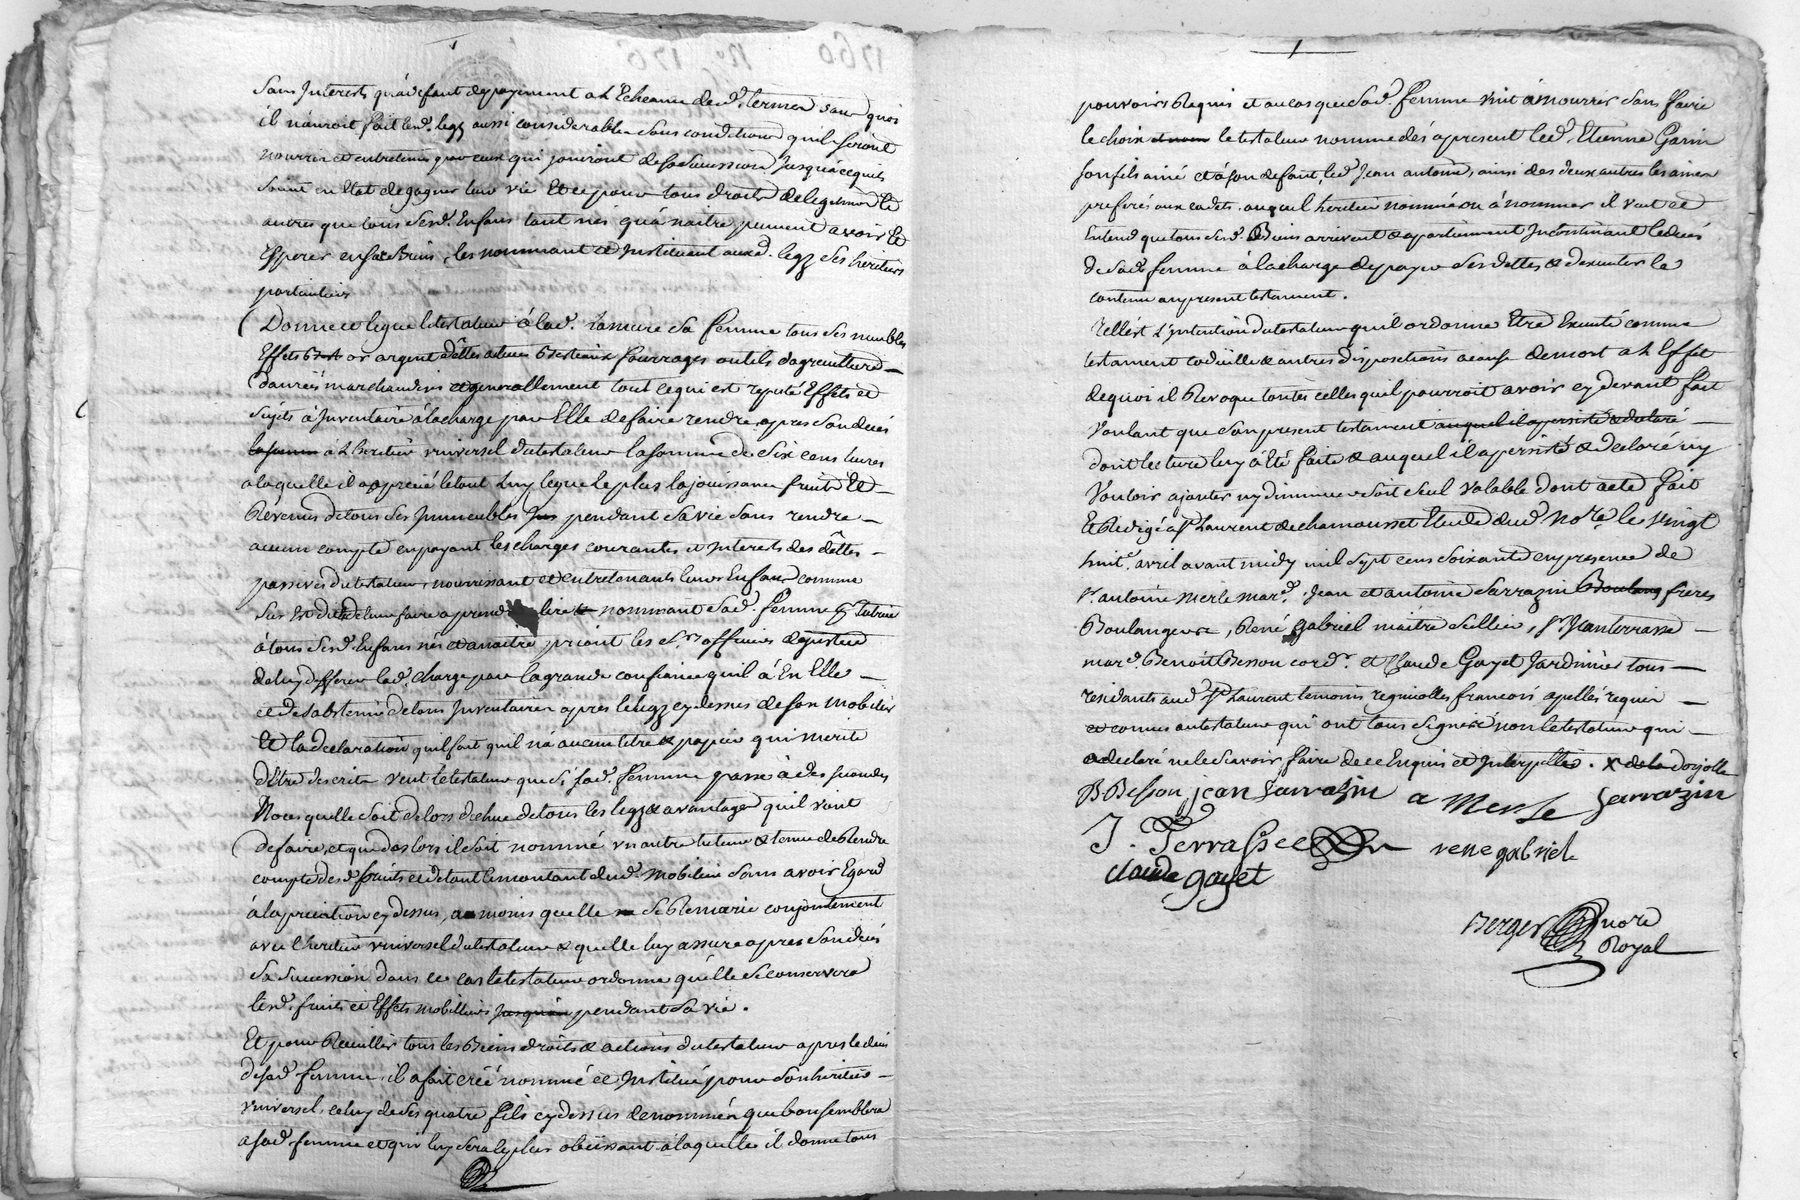 sans Interests qu'a deffaut de payement a l'Echeance desd. termes sans quoi
il n'auroit fait lesd. legs aussi considerables sous condition qu'ils seront
nourris et entretenus par ceux qui jouiront de sa succession jusqu'a ce quils
soint en Etat de gagner leur vie Et ce pour tous droits de legitime Et
autres que tous sesd. Enfans tant nés qu'a naitre peuvent avoir Et
Esperer en ses Biens, les nommant et Instituant auxd. legs ses heritiers
particuliers
Donne et legue le testateur á lad. Lamure sa femme tous ses meubles
Effets or argent dêttes actives Bestiaux fourrages outils d'agriculture
danrées marchandises et generallement tout ce qui est reputé Effets et
sujets á Inventaire á la charge par Elle de faire rendre apres son deces
a l'heritier universel du testateur la somme de six cens livres
a laquelle il apprecié le tout Luy legue de plus la jouissance fruits Et
Révenus de tous ses Immeubles pendant sa vie sans rendre
aucun compte en payant les charges courantes et Interests des dêttes
passives du testateur, nourrissant et entretenants leurs Enfans comme
nommant sad. femme tutrice
á tous sesd. Enfans nés et a naitre, priant les srs officiers de justice
de luy defferer lad. charge par la grande confiance quil á En Elle
et de s'abstenir de tous Inventaires apres le legs cy dessus de son mobilier
Et la declaration qu'il fait qu'il n'a aucun titre & papier qui merite
d'Etre descrits veut le testateur que si sad. femme passe á des secondes
Noces quelle soit de lors dechue de tous les legs & avantages qu'il vient
de faire, et que des lors il soit nommé un autre tuteur & tenue de Rendre
compte desd. fruits et de tout le montant dud. mobilier sans avoir Egard
á l'apreciation cy dessus, a moins quelle se Remarie conjointement
avec l'heritier universel du testateur & quelle luy assure apres son deces
sa succession dans ce cas le testateur ordonne qu'elle se conservera
lesd. fruits et Effets mobilliers jusqu'a pendant sa vie.
Et pour Recueillir tous les Biens droits & actions du testateur apres le deces
de sad. femme, il a fait créé nommé et Institué pour son heritier
universel, celuy de ses quatre fils cy dessus denommés que bon semblera
a sad. femme et qui luy sera le plus obeissant á laquelle il donne tous
pouvoirs Requis et au cas que sad. femme vint á mourrir sans faire
le choix le testateur nomme dés apresent led. Etienne Garin
son fils ainé et á son defaut, led. Jean antoine, ainsi des deux autres les ainés
preferés aux cadets. auquel heritier nommé ou á nommer il veut et
Entend que tous sesd. Biens arrivent & apartiennent Incontinant le deces
de sad. femme á la charge de payer ses dettes & d'executer le
contenu au present testament.
Telle est L'Intention du testateur qu'il ordonne Etre Executé comme
testament codicille & autres dispositions a cause de mort a L'Effet
de quoi il Revoque toutes celles quil pourroit avoir cy devant fait
voulant que son present testament auquel il a persisté & declaré
dont lecture luy á été faite & auquel il a persisté & declaré ny
vouloir ajouter ny diminuer soit seul valable dont acte fait
Et Redigé a St Laurent de chamousset Etude dud. No.re le vingt
huit. avril avant midy mil sept cens soixante en presence de
Sr. antoine merle mard. Jean et antoine Sarrazin Boulang frères
Boulangers, René gabriel maitre sellier, Sr Jean terrasse
mard. Benoit Besson cord.r et Claude Gayet Jardinier tous
residants aud. St Laurent temoins regnicolles francois apellés requis
et connus au testateur qui ont tous signés non le testateur qui
a declaré ne le scavoir faire de ce Enquis et Interpellé.
B Besson jean Sarrazin a Merle Sarrazin
J. Terrasse rene gabriel
claude gayet
Berger nore
Royal